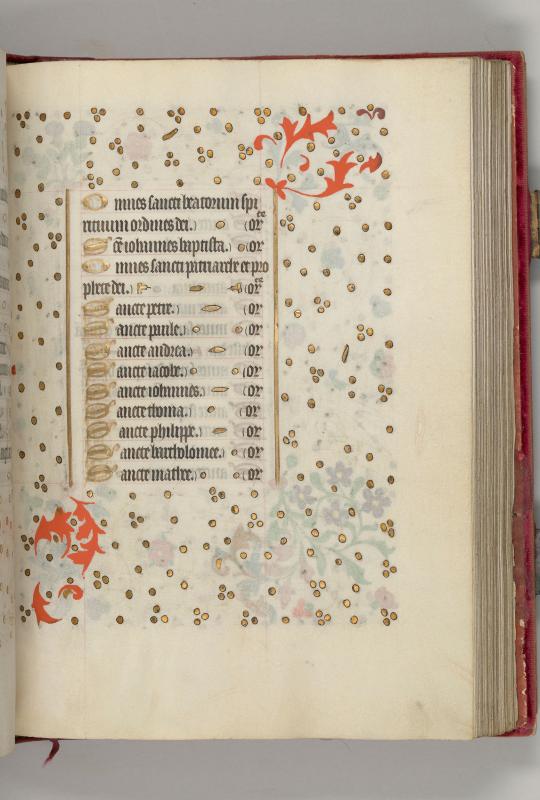 Omnes sancti beatorum spi
rituum ordines dei. or
Sce iohannes baptista. or
Omnes sancti patriarche et pro
phete dei. or
Sancte petre. or
Sancte paule. or
Sancte andrea. or
Sancte iacobe. or
Sancte iohannes. or
Sancte thoma. or
Sancte philippe. or
Sancte bartholomee. or
Sancte mathee. or